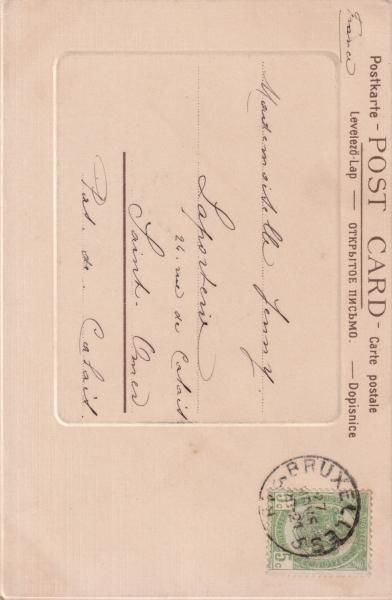 Postkarte - POST CARD - Carte postale
Levelező-Lap — ОТКРЫТОЕ ПИСЬМО. — Dopisnice
France
Mademoiselle Jenny
Laporterie
24. rue de Calais
Saint. Omer
Pas. de. Calais.
BRUXELLES
27
5
5c
5c